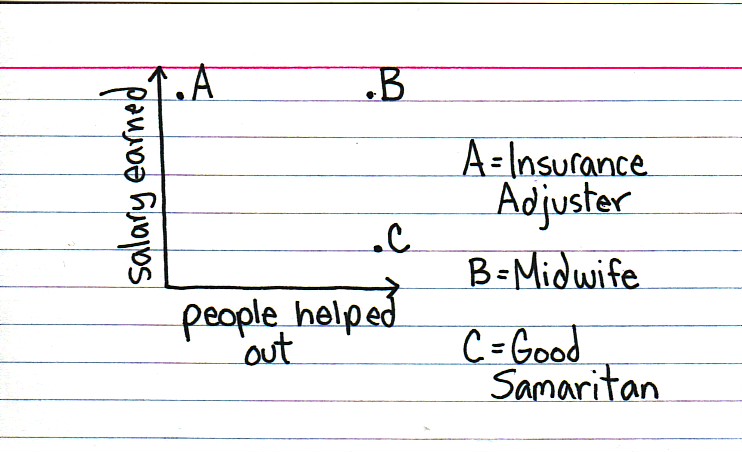 salary earned
.A
.B
.C
people helped
out
A=Insurance
Adjuster
B=Midwife
C=Good
Samaritan